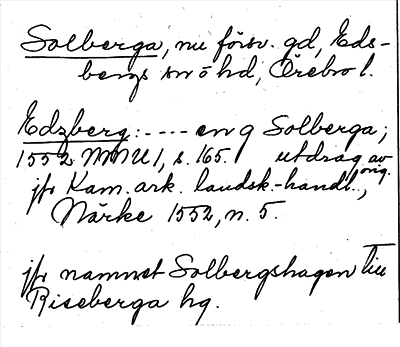 Solberga, nu försv. gd, Eds-
bergs sn o hd, Örebro l.
Edzberg: ---- en g Solberga;
1552 MMU 1, s. 165. utdrag av orig.
jfr Kam. ark. landsk.-handl.,
Närke 1552, n. 5.
jfr namnet Solbergshagen till
Riseberga hg.